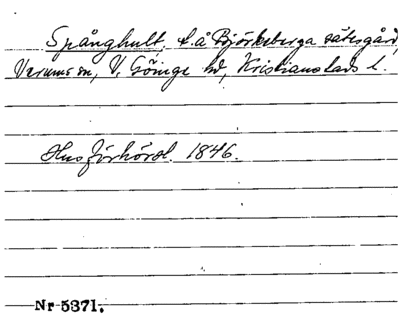 Spånghult. t. å Björkeberga sätesgård,
Verums sn, V. Göinge hd, Kristianstads l.
Husförhörsl. 1846.
Nr 5371.